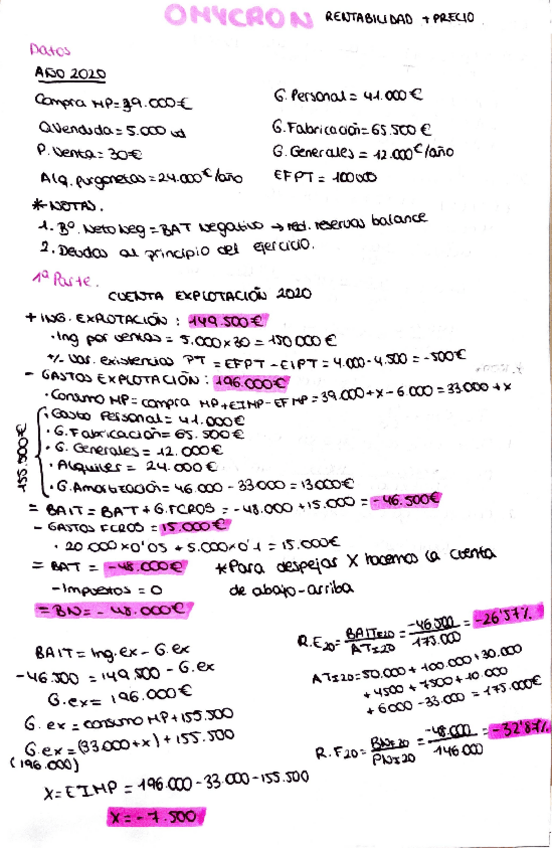 OMYCRON RENTABILIDAD + PRECIO
Datos
AÑO 2020
Compra MP = 39.000€
Q Vendida = 5.000 ud
P. Venta = 30€
Alq. furgonetas = 24.000 €/año
G. Personal = 41.000 €
G. Fabricación = 65.500 €
G. Generales = 12.000 €/año
EFPT = 100 ud
* NOTAS.
1. Bº Neto Neg = BAT Negativo → red. reservas balance
2. Deudas al principio del ejercicio.
1ª Parte.
CUENTA EXPLOTACIÓN 2020
+ ING. EXPLOTACIÓN : 149.500€
· Ing por ventas = 5.000 x 30 = 150 000 €
+/- Var. existencias PT = EFPT - EIPT = 4.000 - 4.500 = -500€
- GASTOS EXPLOTACIÓN : 196.000€
· Consumo MP = compra MP + EIMP - EFMP = 39.000 + x - 6 000 = 33 000 + x
155.500€
· Gasto Personal = 41.000 €
· G. Fabricación = 65.500€
· G. Generales = 12.000 €
· Alquiler = 24.000 €
· G. Amortización = 46.000 - 33 000 = 13 000€
= BAIT = BAT + G. FCROS = -48.000 + 15.000 = -46.500€
- GASTOS FCROS = 15.000€
· 20 000 x 0'05 + 5.000 x 0'1 = 15.000€
= BAT = -48.000€
* Para despejar X hacemos la cuenta
de abajo-arriba
- Impuestos = 0
= BN = -48.000€
BAIT = Ing. ex - G. ex
-46.500 = 149.500 - G. ex
G. ex = 196.000€
G. ex = consumo MP + 155.500
G. ex = (33.000 + x) + 155.500
(196.000)
X = EIMP = 196.000 - 33.000 - 155.500
X = -7.500
R.E20 = BAIT€20 / ATI20 = -46.500 / 175.000 = -26'57%
ATI20 = 50.000 + 100.000 + 30.000
+ 4500 + 7500 + 10.000
+ 6000 - 33.000 = 175.000€
R.F20 = BN€20 / PNI20 = -48.000 / 146 000 = -32'87%